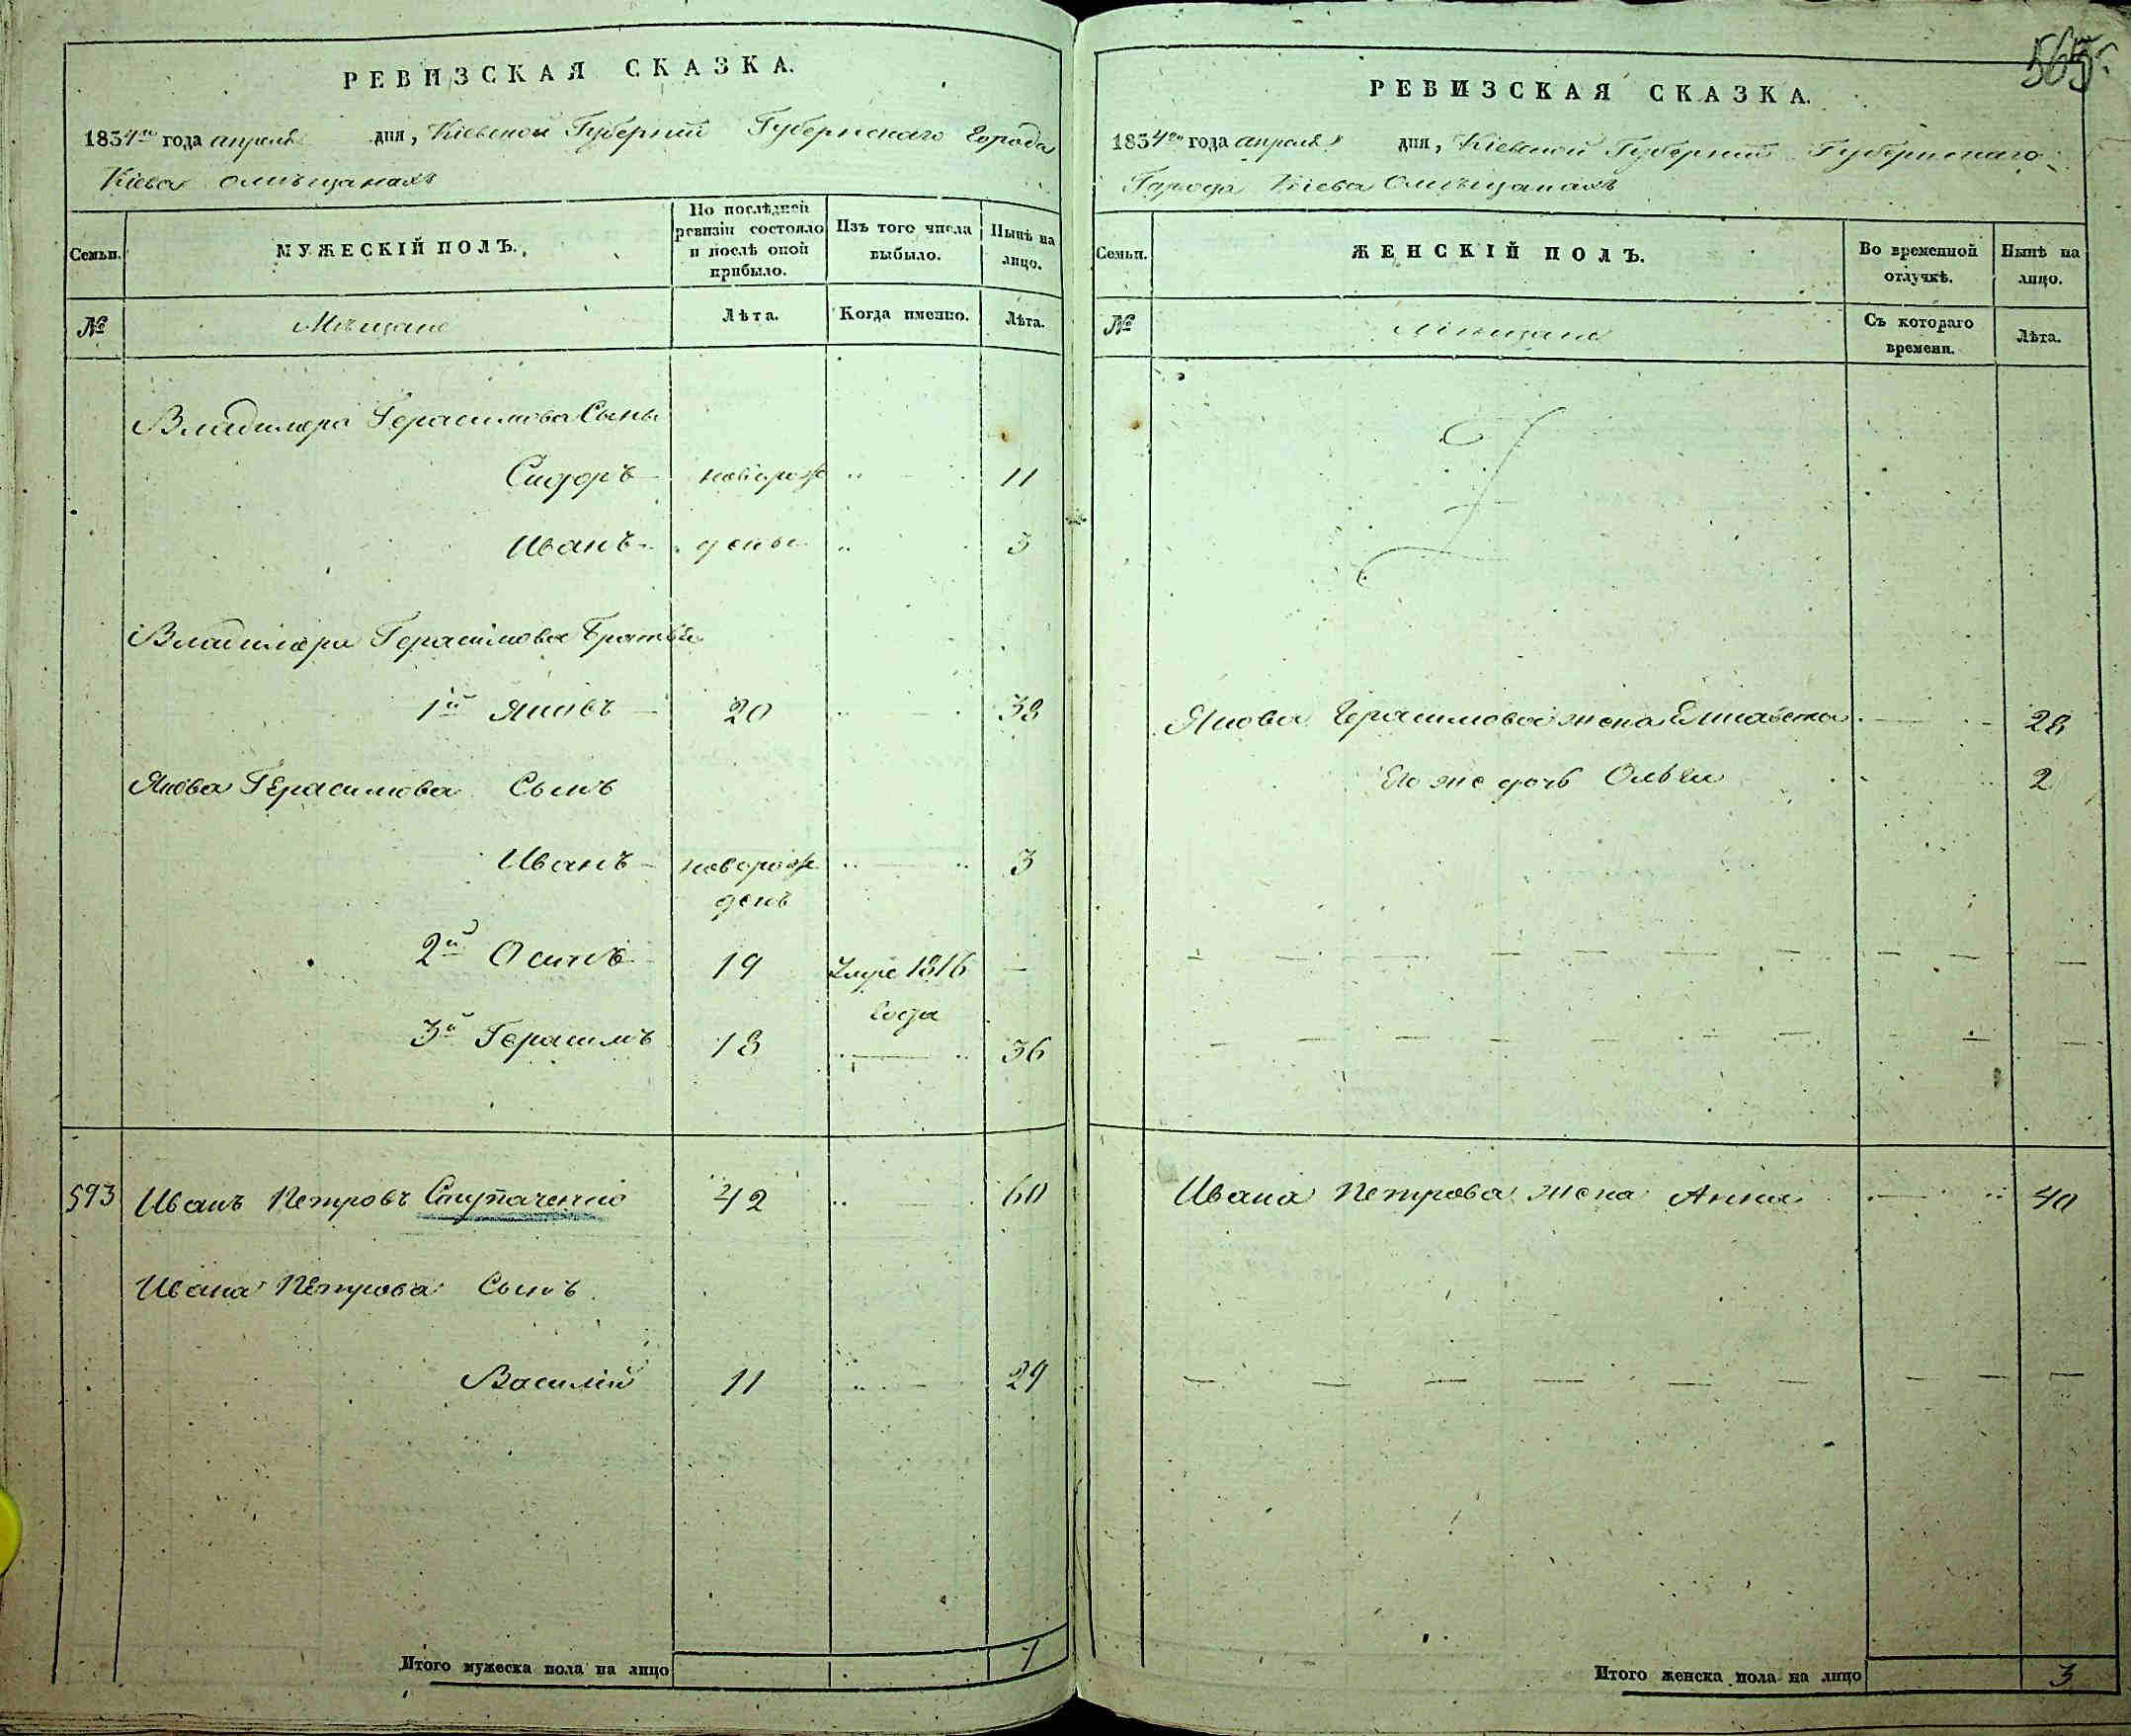 РЕВИЗСКАЯ СКАЗКА.
1834го года апреля дня, Кіевской Губерніи Губернскаго Города
Кіева омѣщанахъ
Семьи.
МУЖЕСКІЙ ПОЛЪ.
По послѣдней ревизіи состояло и послѣ оной прибыло.
Изъ того числа выбыло.
Нынѣ на лицо.
№
Мѣщане
Лѣта.
Когда именно.
Лѣта.
Владимера Герасимова Сыны
Сидоръ новорож 11
Иванъ дены 3
Владимера Герасимова Братья
1й Яковъ 20 38
Якова Герасимова Сынъ
Иванъ новорож 3
денъ
2й Осипъ 19 Умре 1816 —
года
3й Герасимъ 18 36
593 Иванъ Петровъ 42 60
Ивана Петрова Сынъ
Василий 11 29
Итого мужеска пола на лицо 7
565
РЕВИЗСКАЯ СКАЗКА.
1834го года апреля дня, Кіевской Губерніи Губернскаго
Города Кіева Омѣщанахъ
Семьи.
ЖЕНСКІЙ ПОЛЪ.
Во временной отлучкѣ.
Нынѣ на лицо.
№
Мѣщане
Съ котораго времени.
Лѣта.
Якова Герасимова жена Елисавета 28
Его же дочь Ольга 2
Ивана Петрова жена Анна 40
Итого женска пола на лицо 3